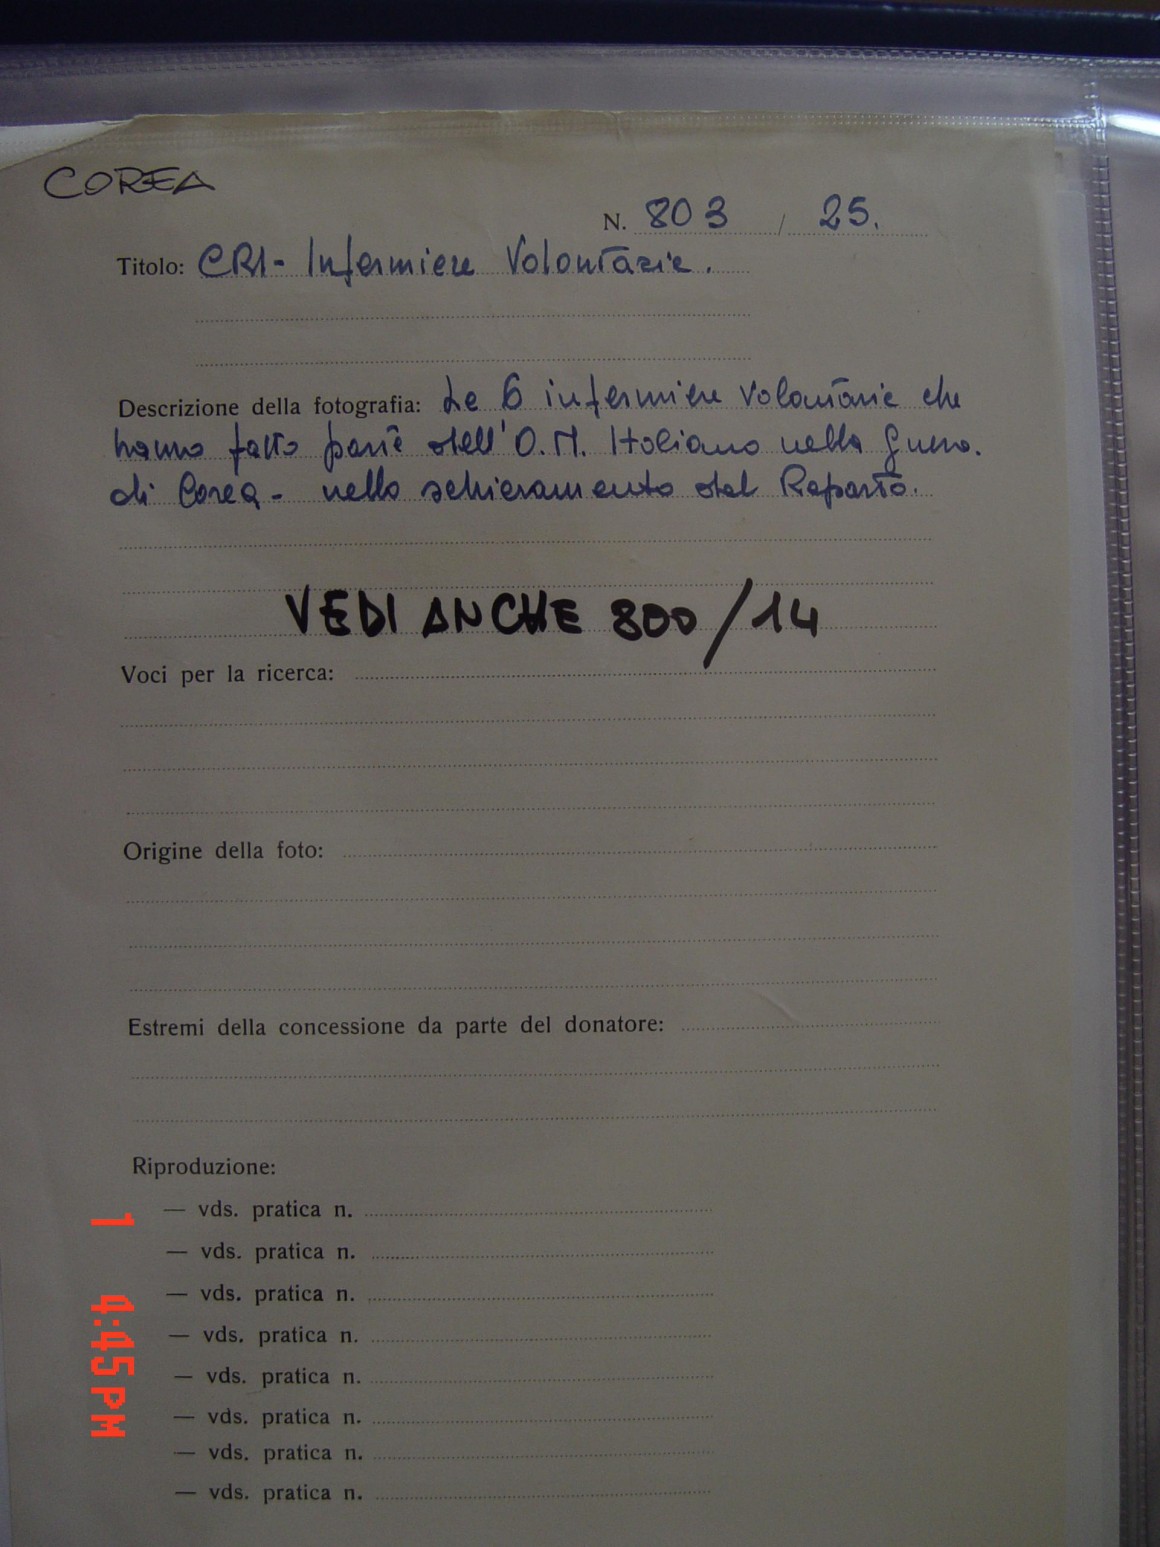 COREA
N. 803 / 25.
Titolo: CRI - Infermiere Volontarie.
Descrizione della fotografia: Le 6 infermiere Volontarie che
hanno fatto parte dell'O.M. Italiano nella guerra.
di Corea - nello schieramento del Reparto.
VEDI ANCHE 800/14
Voci per la ricerca:
Origine della foto:
Estremi della concessione da parte del donatore:
Riproduzione:
— vds. pratica n.
— vds. pratica n.
— vds. pratica n.
— vds. pratica n.
— vds. pratica n.
— vds. pratica n.
— vds. pratica n.
— vds. pratica n.
1 4:45PM